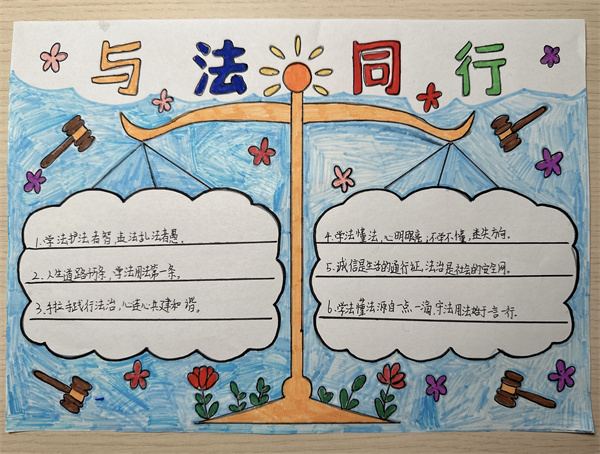 与法同行
1.学法护法者智,盂法乱法者愚。
2.人生道路千条,学法用法第一条。
3.手拉手践行法治,心连心共建和谐。
4.学法懂法,心明眼亮;不学不懂,迷失方向。
5.诚信是生活的通行证,法治是社会的安全网。
6.学法懂法源自一点一滴,守法用法始于一言一行.